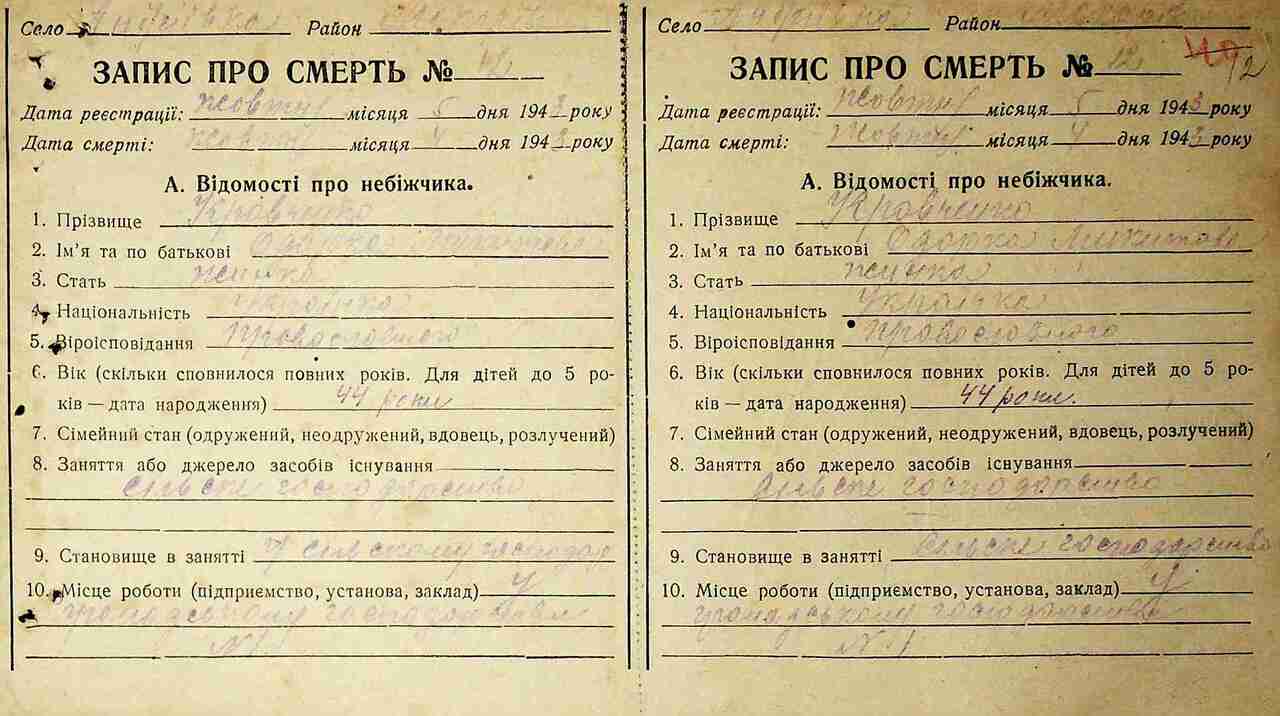 Село Район
ЗАПИС ПРО СМЕРТЬ № 12
Дата реєстрації: жовтня місяця 5 дня 1943 року
Дата смерті: жовтня місяця 4 дня 1943 року
А. Відомості про небіжчика.
1. Прізвище Кравченко
2. Ім'я та по батькові
3. Стать жінка
4. Національність українка
5. Віроісповідання православного
6. Вік (скільки сповнилося повних років. Для дітей до 5 ро-
ків — дата народження) 44 роки
7. Сімейний стан (одружений, неодружений, вдовець, розлучений)
8. Заняття або джерело засобів існування
сільське господарство
9. Становище в занятті У сільському господар
10. Місце роботи (підприємство, установа, заклад) У
громадському господарстві
№ 1
Село Район
ЗАПИС ПРО СМЕРТЬ № 12
Дата реєстрації: жовтня місяця 5 дня 1943 року
Дата смерті: жовтня місяця 4 дня 1943 року
А. Відомості про небіжчика.
1. Прізвище Кравченко
2. Ім'я та по батькові Одарка Микитовна
3. Стать жінка
4. Національність Українка
5. Віроісповідання православного
6. Вік (скільки сповнилося повних років. Для дітей до 5 ро-
ків — дата народження) 44 роки.
7. Сімейний стан (одружений, неодружений, вдовець, розлучений)
8. Заняття або джерело засобів існування
сільське господарство
9. Становище в занятті сільське господарство
10. Місце роботи (підприємство, установа, заклад) У
громадському господарстві
№ 1